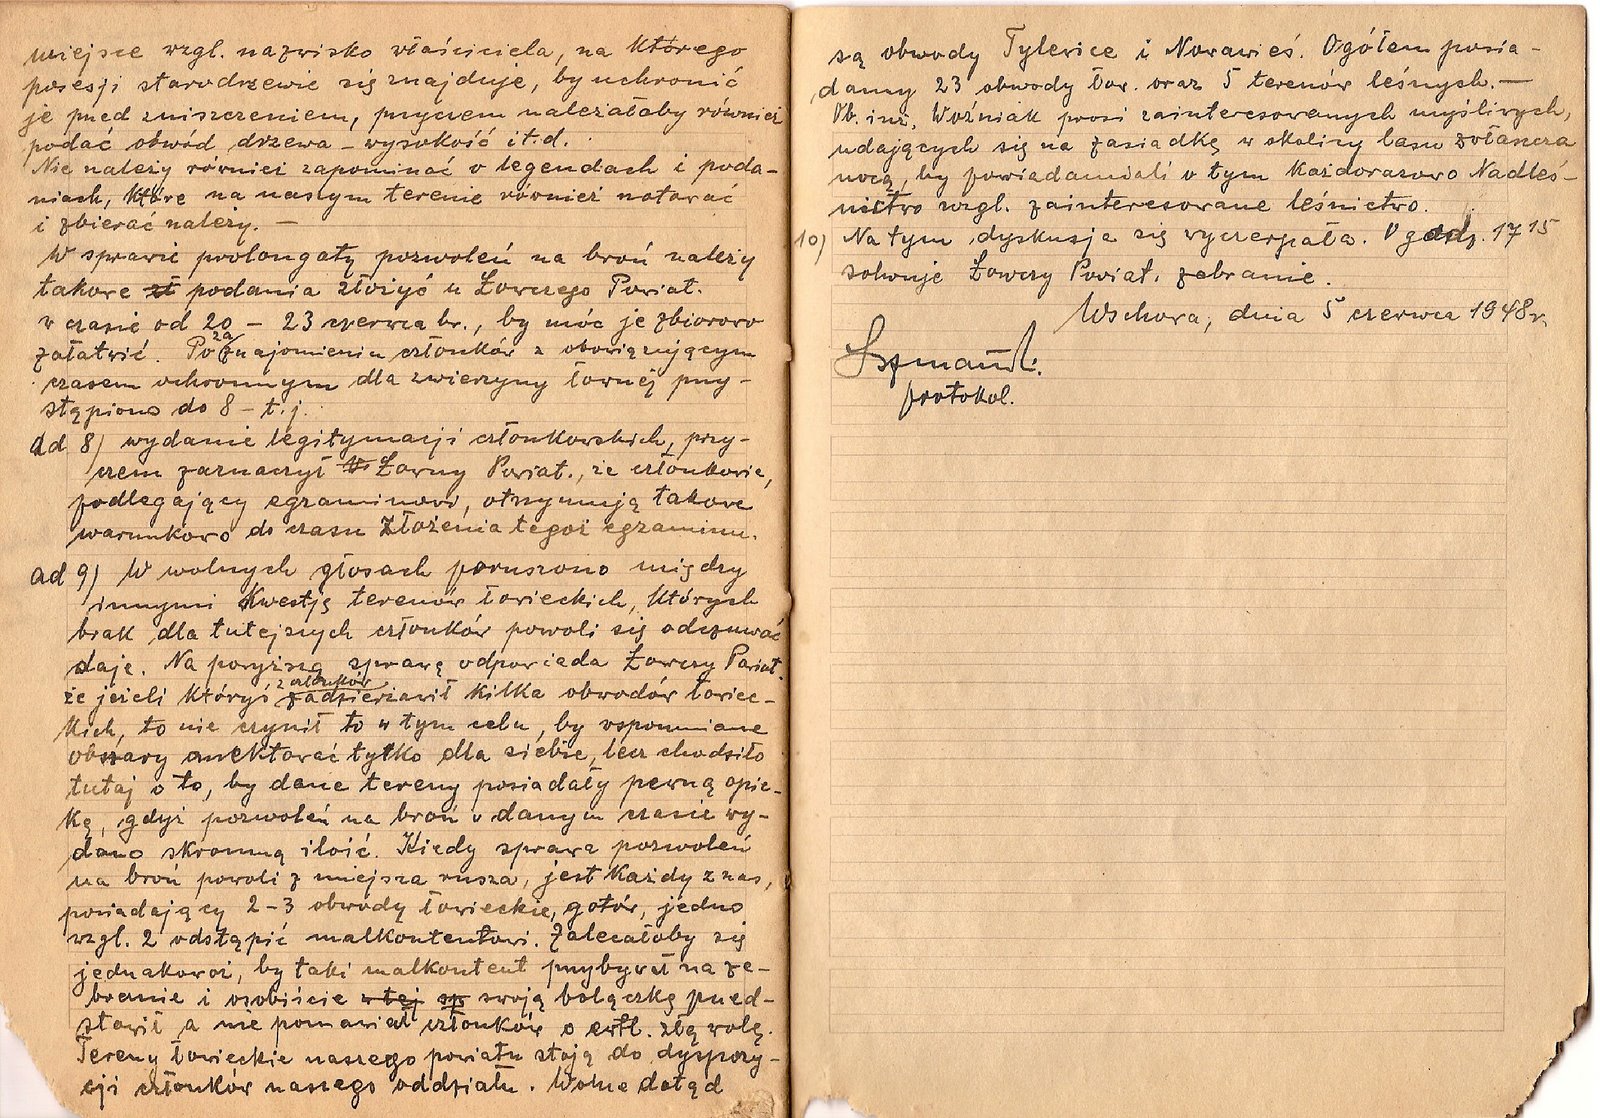 miejsce wzgl. nazwisko właściciela, na którego
posesji starodrzewie się znajduje, by uchronić
je przed zniszczeniem, przyczem należałoby również
podać obwód drzewa – wysokość itd.
Nie należy również zapominać o legendach i poda-
niach, które na naszym terenie również notować
i zbierać należy. —
W sprawie prolongaty pozwoleń na broń należy
takowe podania złożyć u Łowczego Powiat.
w czasie od 20 – 23 czerwca br., by móc je zbiorowo
załatwić. Po zaznajomieniu członków z obowiązującym
czasem ochronnym dla zwierzyny łownej przy-
stąpiono do 8 – t.j.
ad 8) wydanie legitymacji członkowskich, przy-
czem zaznaczył Łowczy Powiat., że członkowie,
podlegający egzaminowi, otrzymują takowe
warunkowo do czasu złożenia tegoż egzaminu.
ad 9) W wolnych głosach poruszono między
innymi kwestję terenów łowieckich, których
brak dla tutejszych członków powoli się odczuwać
daje. Na powyższą sprawę odpowiada Łowczy Powiat.
że jeżeli któryś z członków zadzierżawił kilka obwodów łowiec-
kich, to nie czynił to w tym celu, by wspomniane
obszary anektować tylko dla siebie, lecz chodziło
tutaj o to, by dane tereny posiadały pewną opie-
kę, gdyż pozwoleń na broń w danym czasie wy-
dano skromną ilość. Kiedy sprawa pozwoleń
na broń powoli z miejsca rusza, jest każdy z nas,
posiadający 2–3 obwody łowieckie, gotów, jedno
wzgl. 2 odstąpić malkontentowi. Zalecałoby się
jednakowoż, by taki malkontent przybywał na ze-
branie i osobiście w tej sp swoją bolączkę przed-
stawił a nie pomawiał członków o ewtl. złą wolę.
Tereny łowieckie naszego powiatu stoją do dyspozy-
cji członków naszego oddziału. Wolne dotąd
są obwody Tylewice i Nowawieś. Ogółem posia-
damy 23 obwody łow. oraz 5 terenów leśnych. —
Ob. inż. Woźniak prosi zainteresowanych myśliwych,
udających się na zasiadkę w okolicy lasu
nocą, by powiadamiali o tym każdorazowo Nadleś-
nictwo wzgl. zainteresowane leśnictwo.
10) Na tym dyskusja się wyczerpała. O godz. 17 15
solwuje Łowczy Powiat. zebranie.
Wschowa, dnia 5 czerwca 1948 r.
protokol.